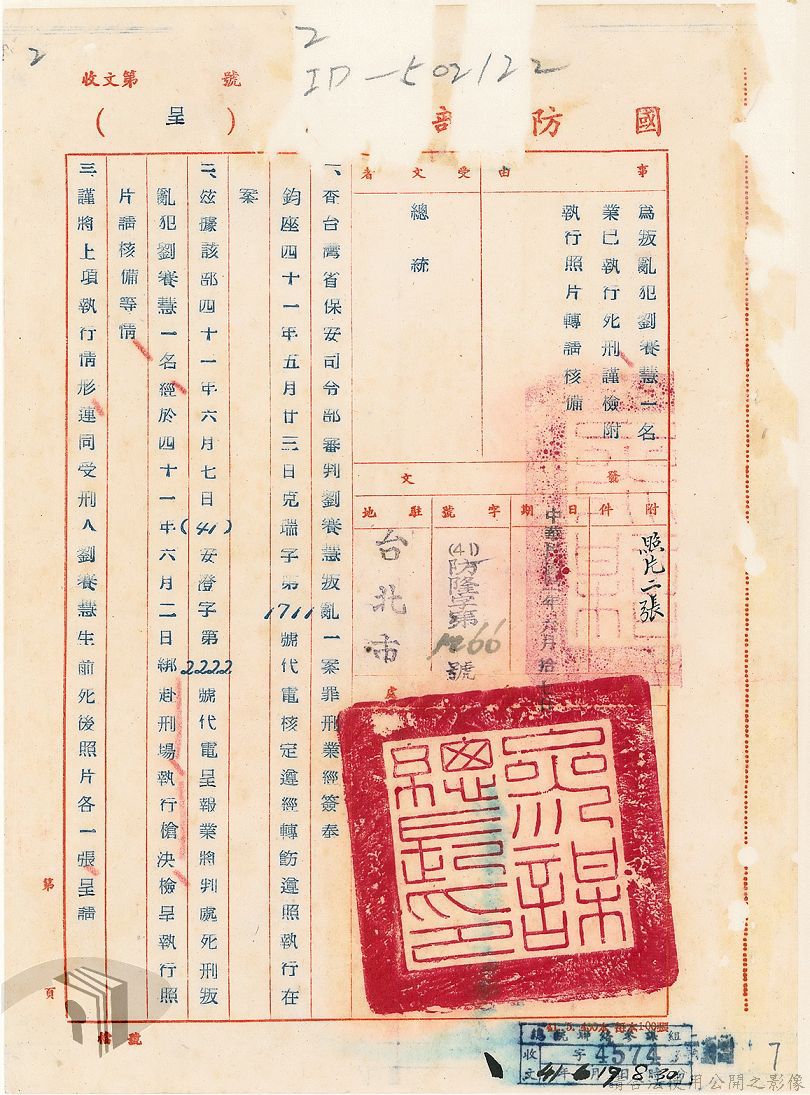 2
2
ID-502122
收文第 號
國防部
(呈)
事由
為叛亂犯劉養慧一名
業已執行死刑謹檢附
執行照片轉請核備
受文者
總統
發文
附件
照片二張
日期
字號
(41)防隆字第
66號
駐地
台北市
一、查台灣省保安司令部審判劉養慧叛亂一案罪刑業經簽奉
鈞座四十一年五月廿三日克瑞字第1711號代電核定遵經轉飭遵照執行在
案
二、玆據該部四十一年六月七日(41)安澄字第2222號代電呈報業將判處死刑叛
亂犯劉養慧一名經於四十一年六月二日綁赴刑場執行槍決檢呈執行照
片請核備等情
三、謹將上項執行情形連同受刑人劉養慧生前死後照片各一張呈請
參謀總長之印
第 頁
檔號
收文
字4574
41年6月19日8時30
7
請合法使用公開之影像